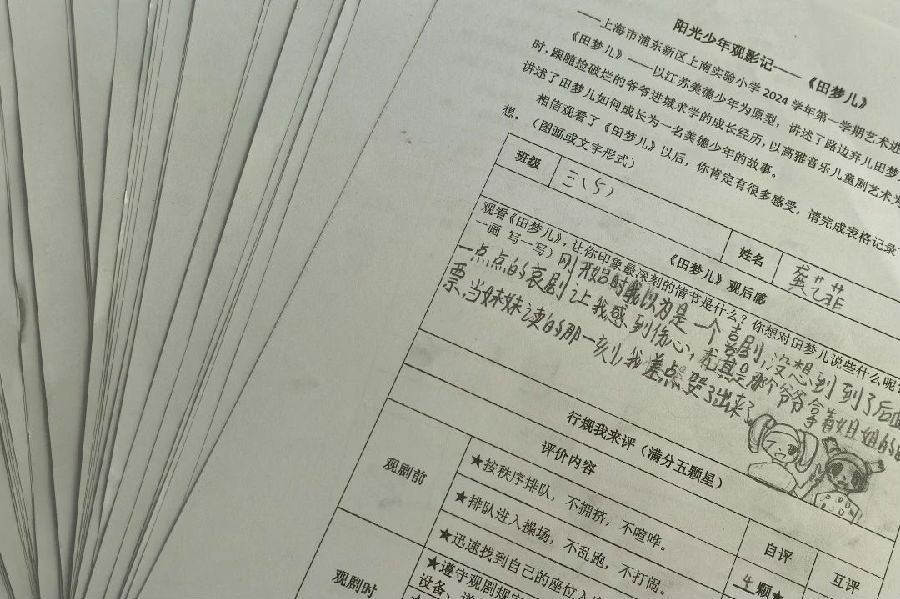 阳光少年观影记——《田梦儿》
——上海市浦东新区上南实验小学2024学年第一学期艺术进
《田梦儿》——以江苏美德少年为原型，讲述了路边弃儿田梦
时，跟随捡破烂的爷爷进城求学的成长经历，以高雅音乐儿童剧艺术为
讲述了田梦儿如何成长为一名美德少年的故事。
相信观看了《田梦儿》以后，你肯定有很多感受，请完成表格记录
想。（图画或文字形式）
班级
三(5)
姓名
《田梦儿》观后感
观看《田梦儿》，让你印象最深刻的情节是什么？你想对田梦儿说些什么呢
一画 写一写）刚开始时我以为是一个喜剧，没想到到了后面
一点点的哀剧让我感到伤心，尤其是那个爷爷拿着姐姐的
票，当妹妹读的那一刻，我差点哭了出来
行规我来评（满分五颗星）
评价内容
自评
互评
观剧前
★按秩序排队，不拥挤，不喧哗。
★排队进入操场，不乱跑，不打闹。
4颗★
★迅速找到自己的座位入
观剧时
★遵守观剧规
设备、